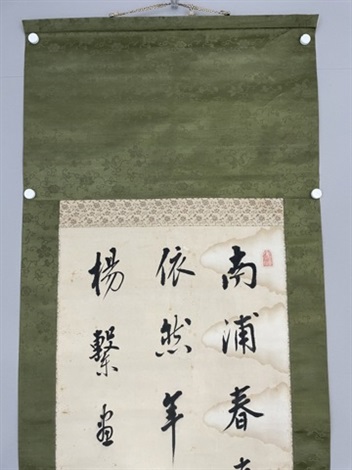 南浦春
依然年
楊繫畫